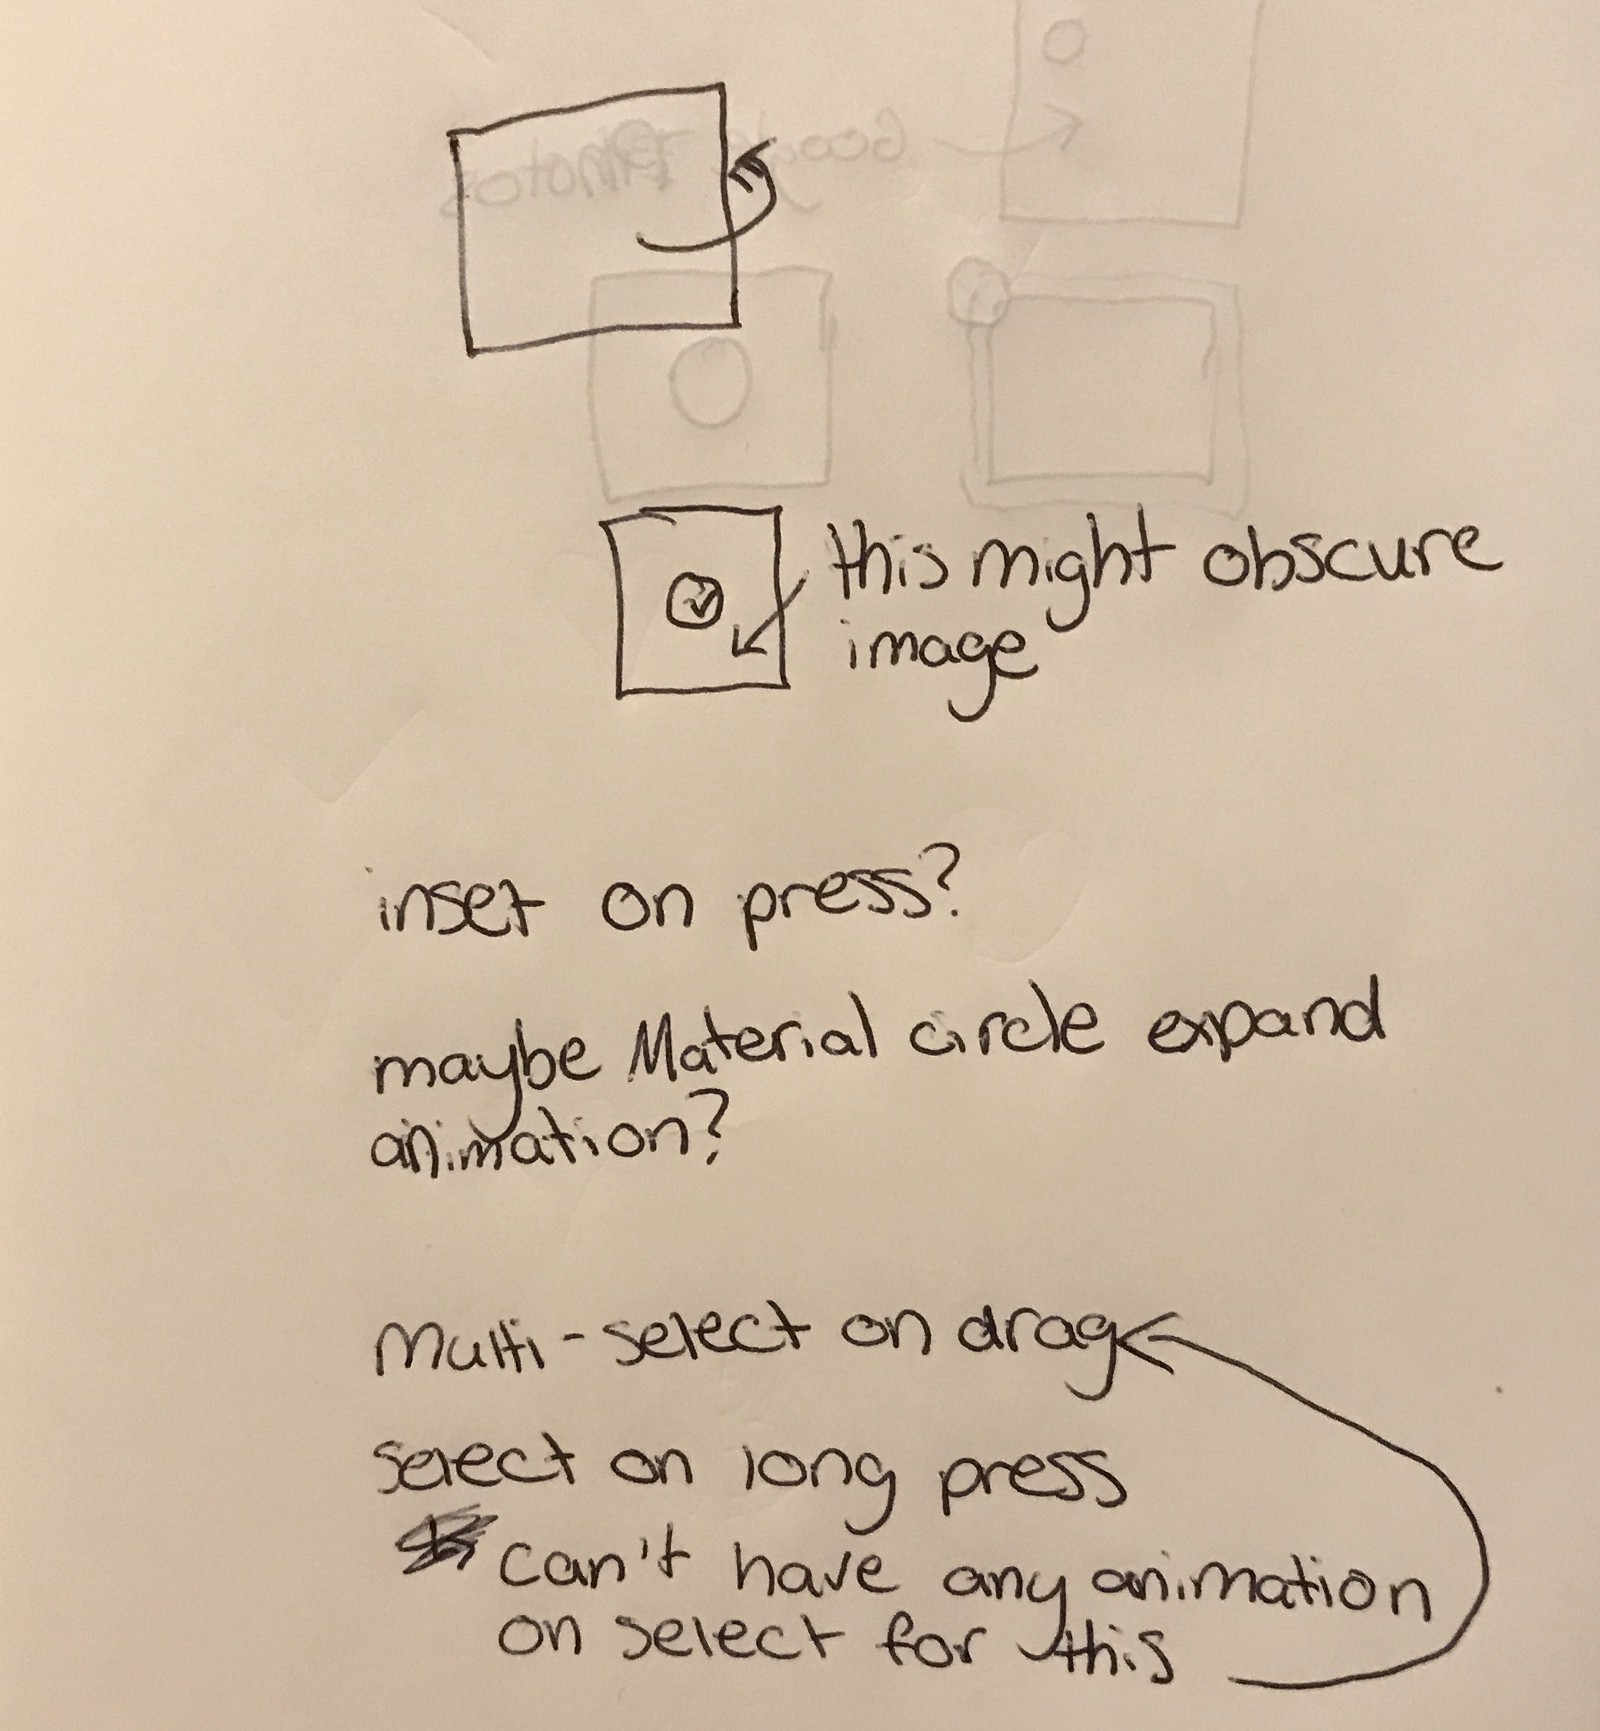 Google Photos
this might obscure
image
inset on press?
maybe Material circle expand
animation?
Multi-select on drag
select on long press
can't have any animation
on select for this